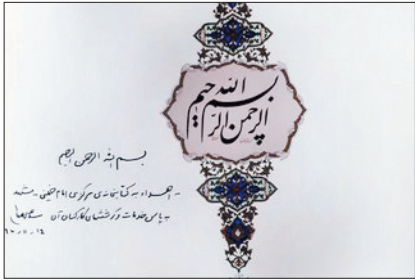 بسم الله الرحمن الرحیم
بسم الله الرحمن الرحیم
- اهداء به کتابخانه‌ی مرکزی امام خمینی - مشهد
به پاس خدمات و تلاش کارکنان آن